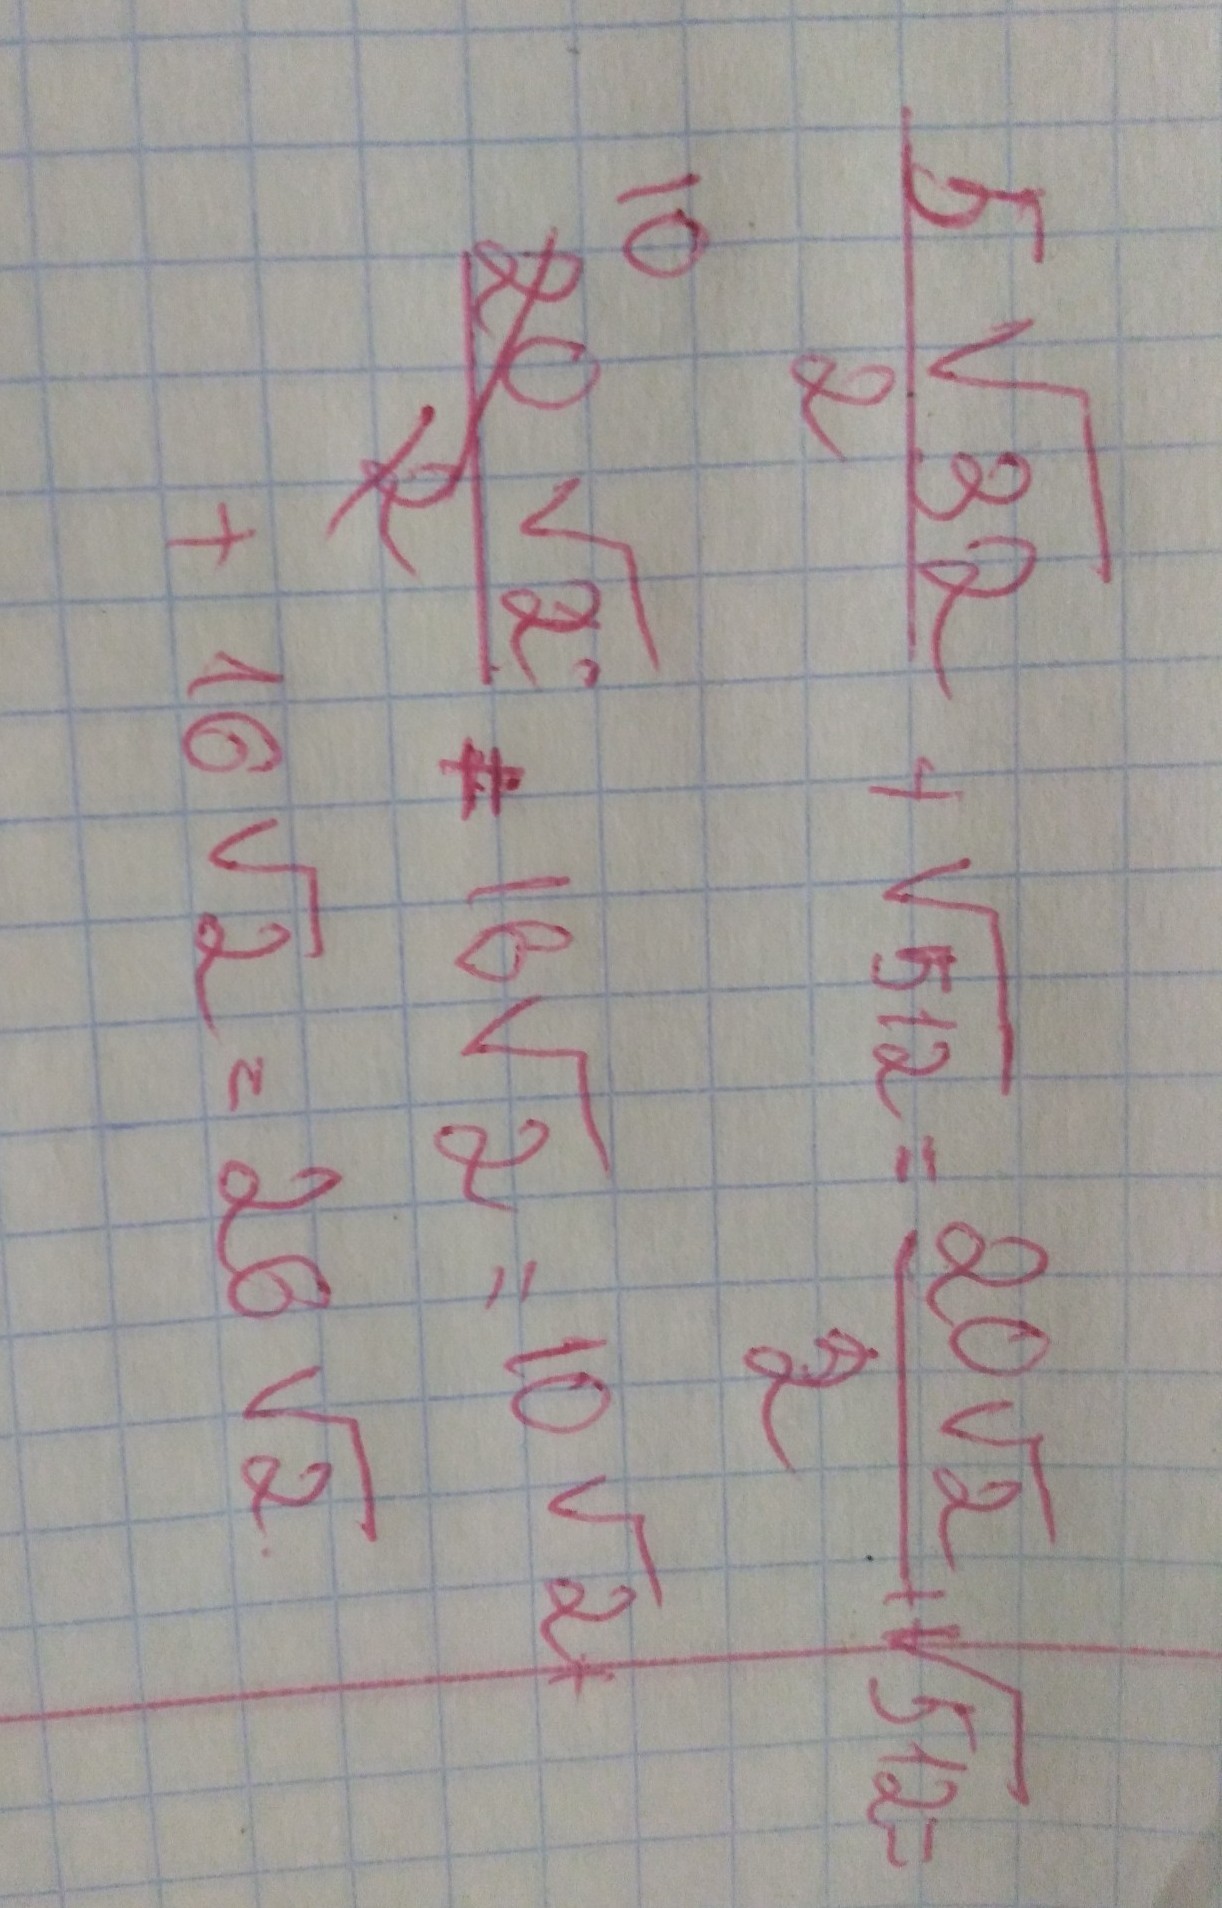 5√32/2 + √512 = 20√2/2 + √512 =
10
20√2/2 + 16√2 = 10√2 +
+ 16√2 = 26√2.